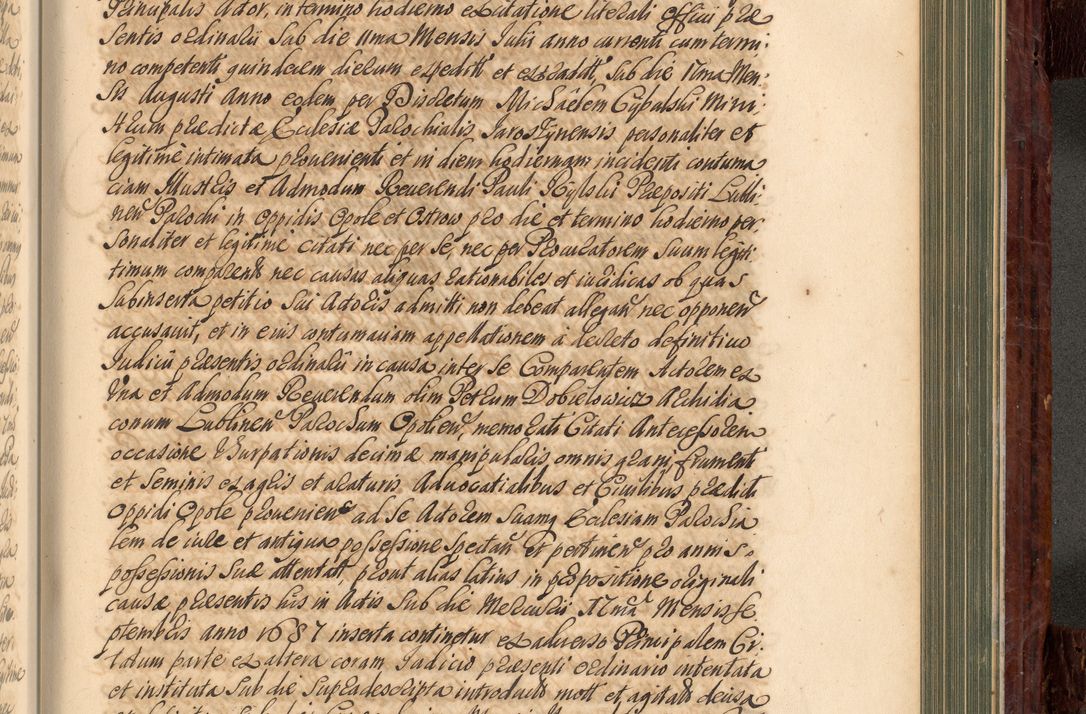 Principalis Actor, in termino hodierno ex citatione literali officii præ
sentis ordinarii sub die 11ma Mensis Julii anno currenti cum termi:
no competenti quindecim dierum expeditt et exādditt, sub die 17ma Men:
sis Augusti Anno eodem per Discretum Michaelem Cybalski Mini:
strum prædictæ Ecclesiæ Parochialis Jaroszynensis personaliter et
legitimè intimata provenienti et in diem hodiernam incidenti contuma
ciam Illustris et Admodum Reverendi Pauli Rylski Præpositi Lubli:
nen Parochi in oppidis Opole et Ostrow pro die et termino hodierno per
sonaliter et legitimè citati nec per se, nec per Procuratorem suum legit:
timum comparent nec causas aliquas rationabiles et iuridicas ob quas
subinserta petitio sui Actoris admitti non debeat allegan nec opponen
accusavit, et in eius contumaciam appellationem à decreto definitivo
Judicii præsentis ordinarii in causa inter se Comparentem Actorem ex
una et Admodum Reverendum olim Petrum Dobielowicz Archidia
conum Lublinen Parochum Opolien, memorati Citati Antecessorem
occasione Usurpationis decimæ manipularis, omnis grani, frumenti
et seminis ex agris et araturis Advocatialibus et Civilibus prædicti
Oppidi Opole provenien ad se Actorem suamq Ecclesiam Parochia
lem de iure et antiqua possessione spectan et pertinen pro annis
possessionis suæ attentatt, prout alias latius in propositione originali
causæ præsentis his in Actis sub die Mercurii 17ma Mensis Se
ptembris anno 1687 inserta continetur ex adverso Principalem Ci
tatum parte ex altera coram Judicio præsenti ordinario intentata
et instituta sub die supradescripta introduct mott et agitat decisa